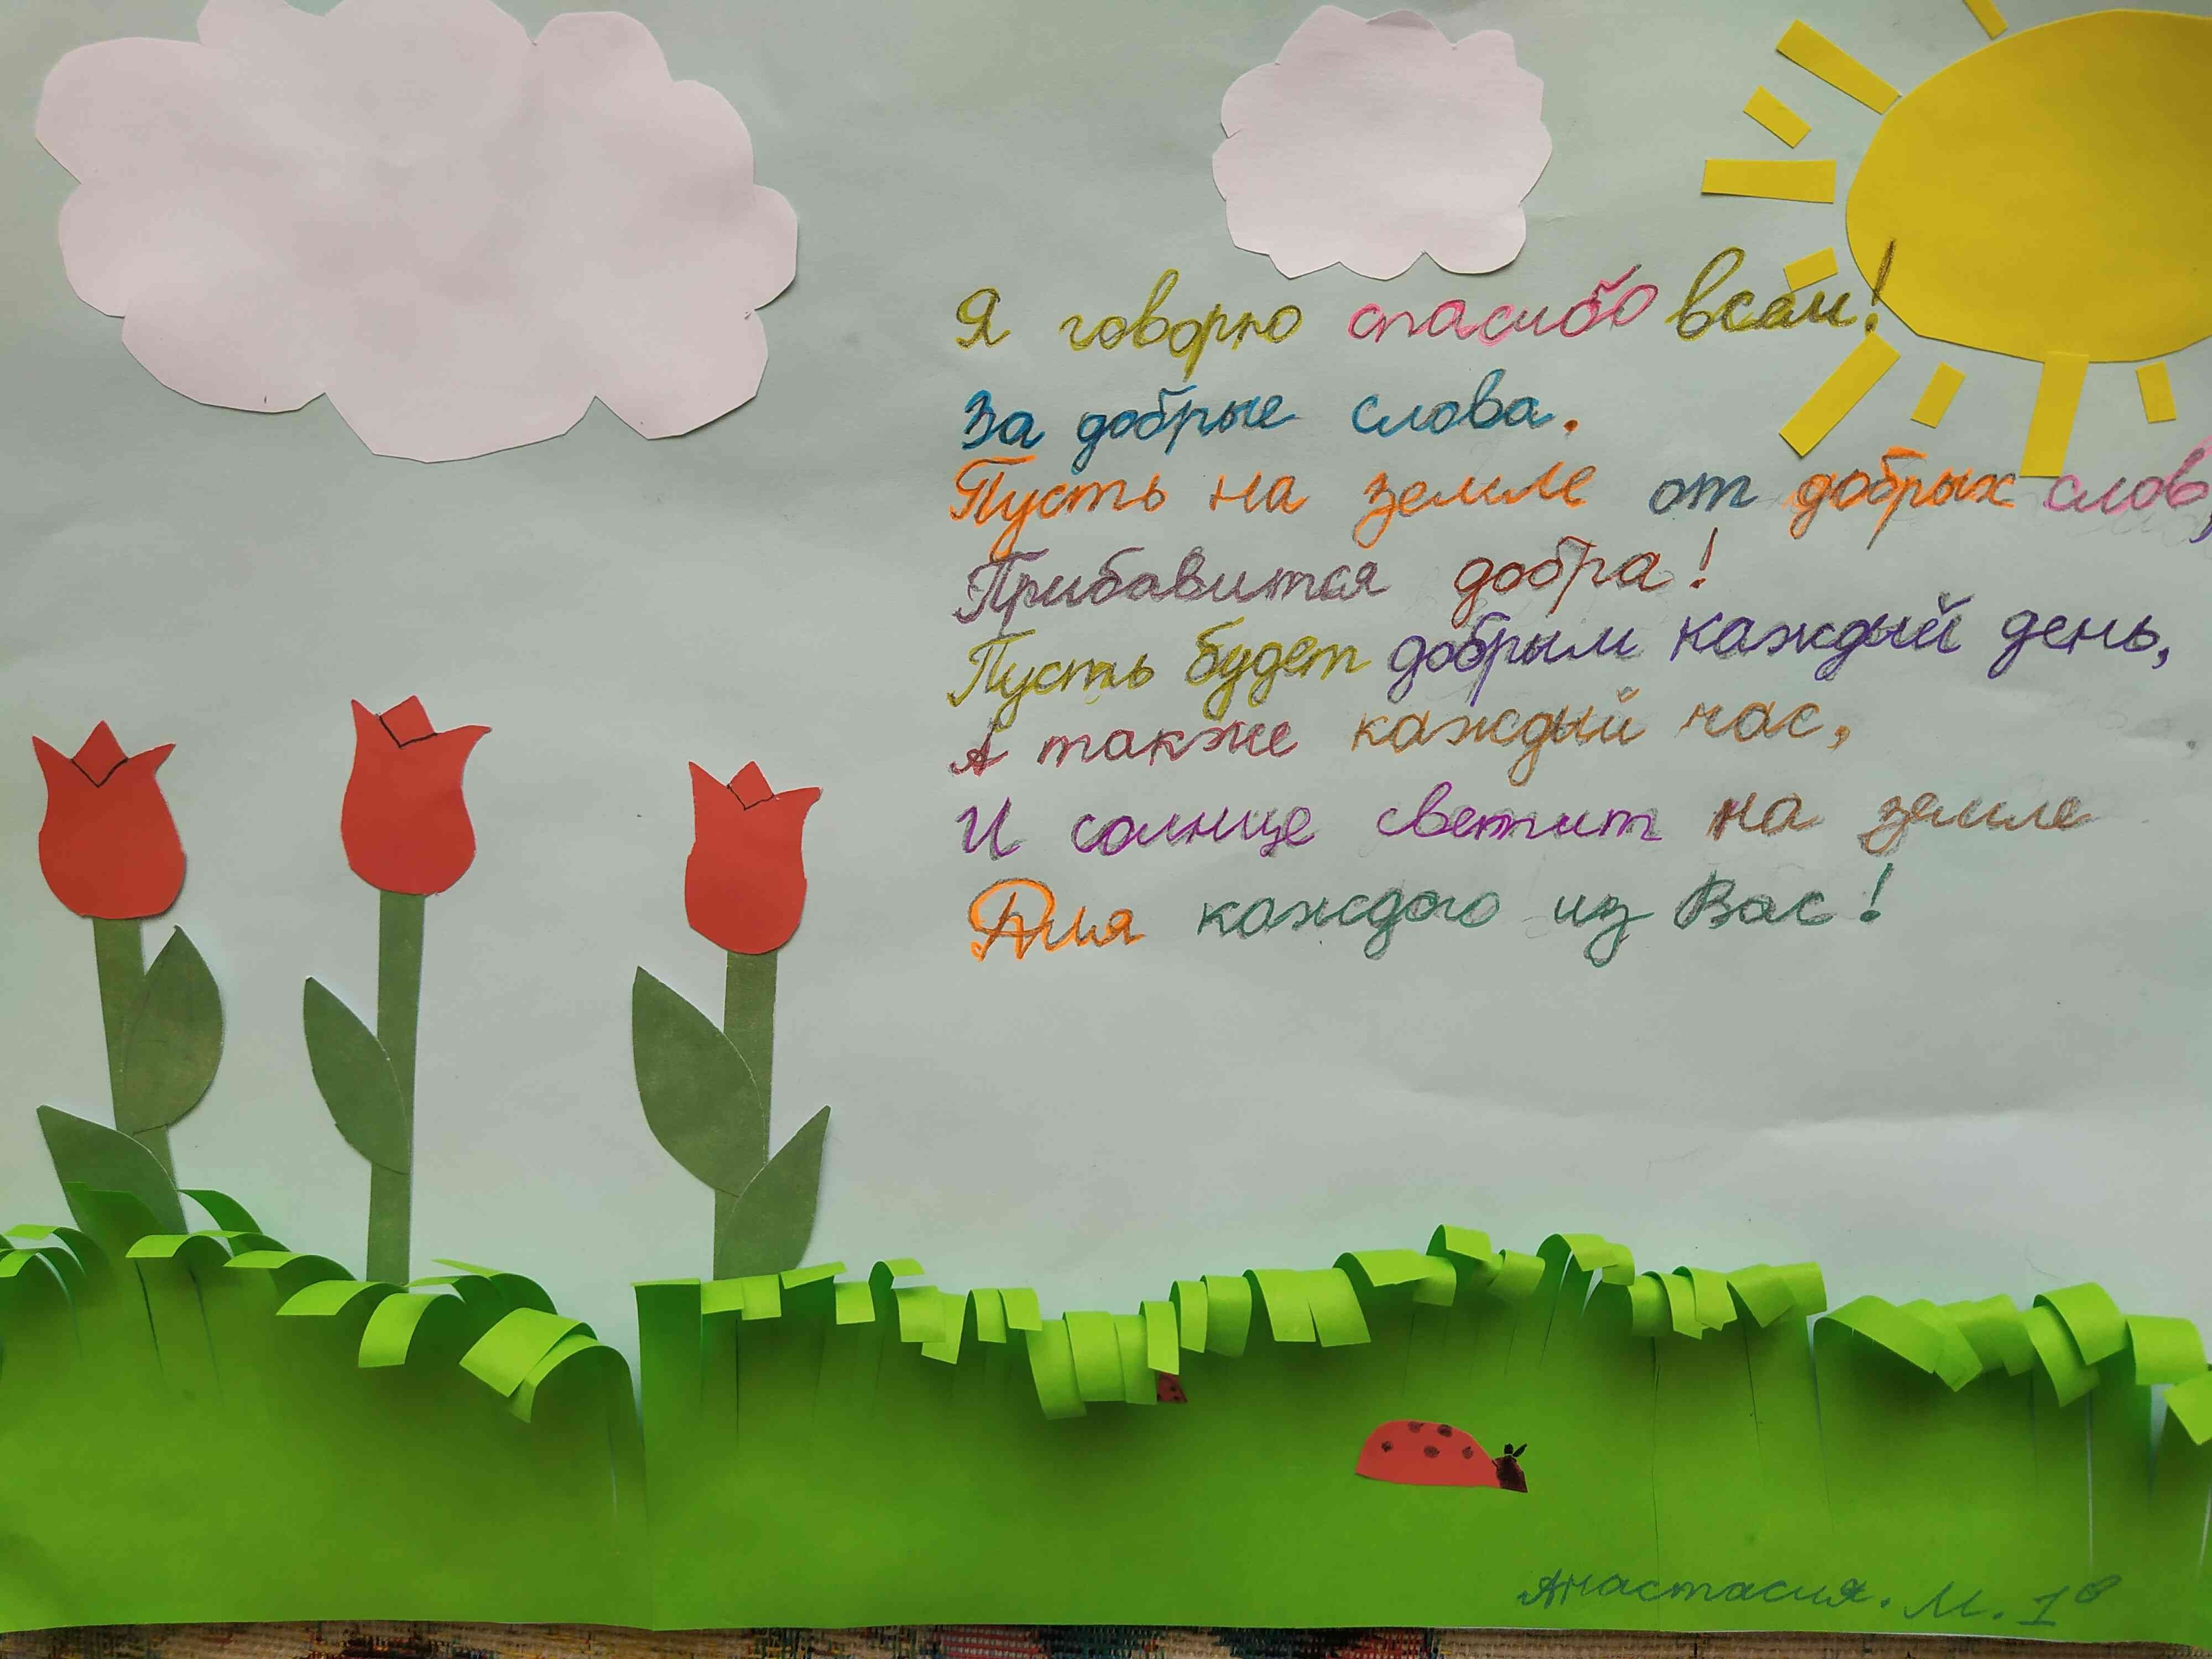 Я говорю спасибо всем!
За добрые слова.
Пусть на земле от добрых слов,
Прибавится добра!
Пусть будет добрым каждый день,
А также каждый час,
И солнце светит на земле
Для каждого из Вас!
Анастасия. М. 1 в